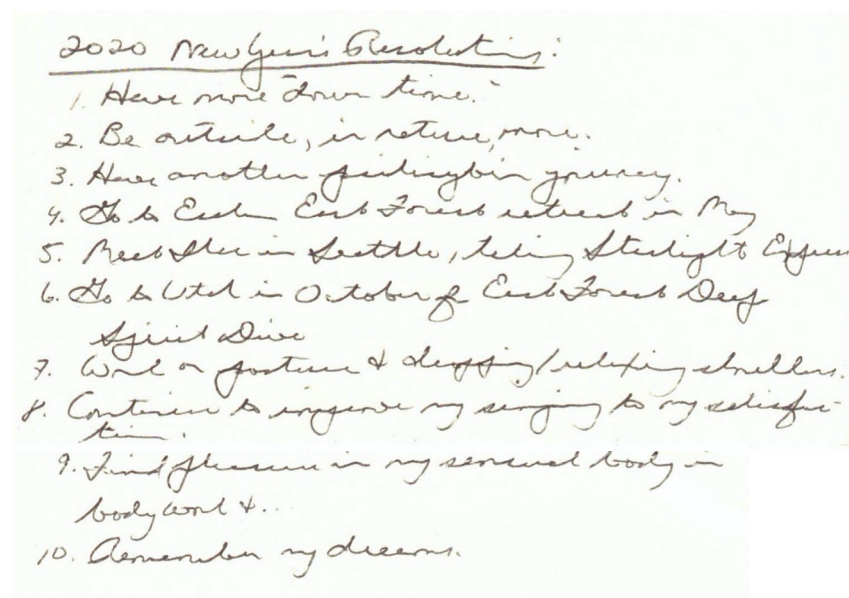 2020 New Year's Resolutions:
1. Have more "down time."
2. Be outside, in nature, more.
3. Have another psilocybin journey.
4. Go to East Forest retreat in May
5. Meet in Seattle, taking Starlight Express
6. Go to Utah in October for East Forest Deep
Spirit Dive
7. Work on posture & dropping/relaxing shoulders.
8. Continue to improve my singing to my satisfac-
tion.
9. Find pleasure in my sensual body in
body work &...
10. Remember my dreams.